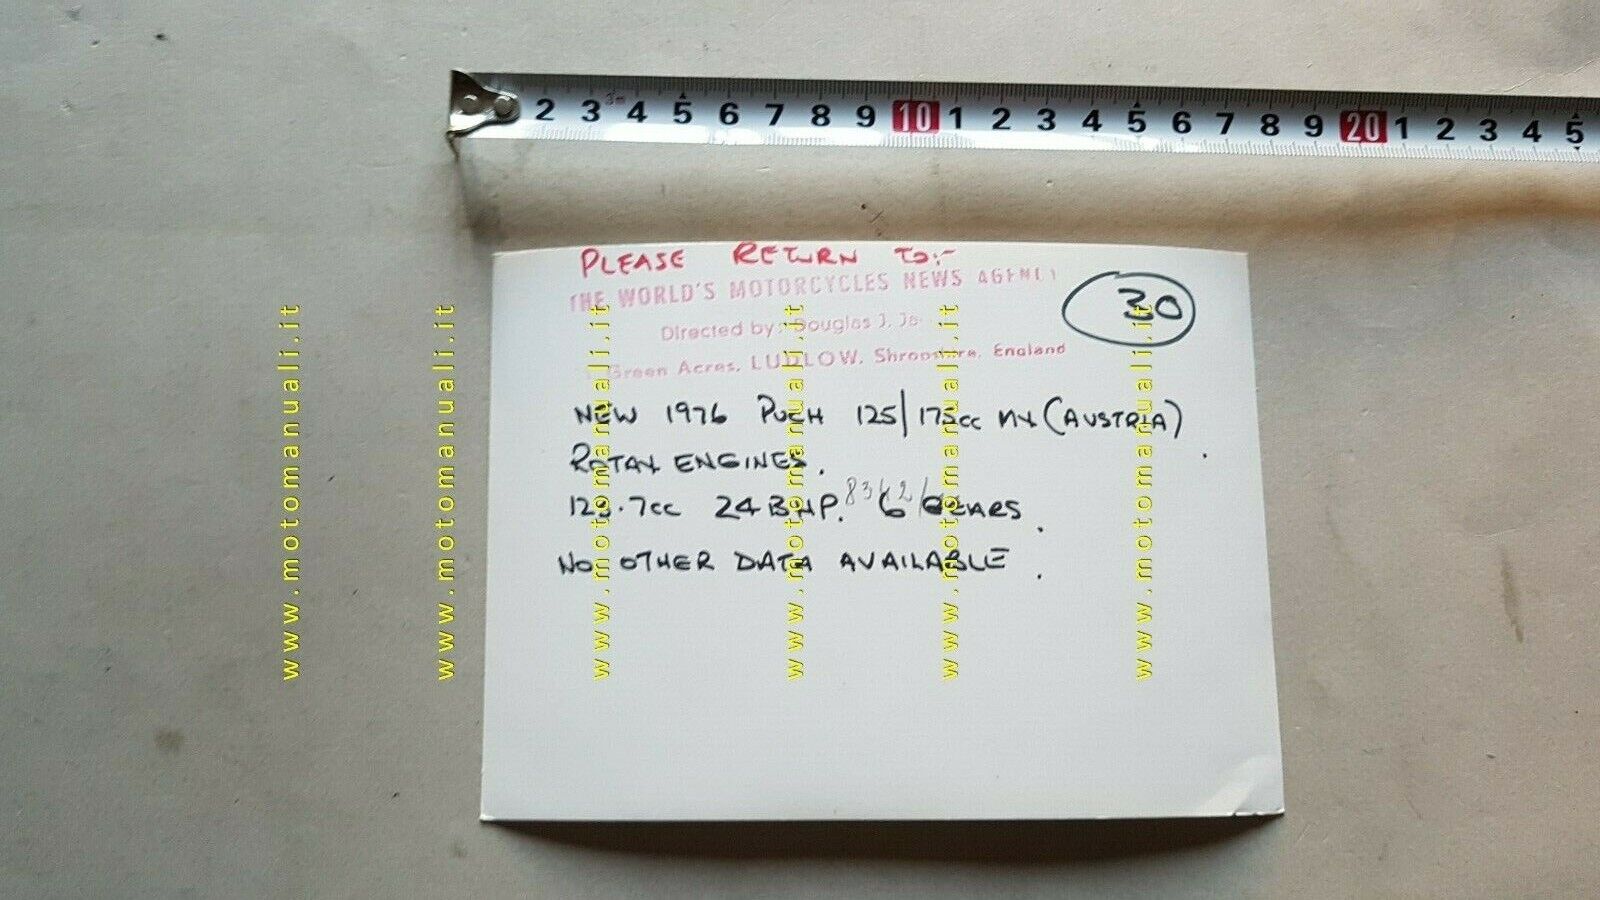 2 3 3m 4 5 6 7 8 9 10 1 2 3 4 5 6 7 8 9 20 1 2 3 4 5
PLEASE RETURN TO:-
THE WORLD'S MOTORCYCLES NEWS AGENCY
30
Directed by: Douglas J.
Green Acres, LUDLOW, Shropshire, England
NEW 1976 PUCH 125/175cc MX (AUSTRIA)
ROTAX ENGINES.
7cc 24 BHP. 6 GEARS.
NO OTHER DATA AVAILABLE.
www.motomanuali.it
www.motomanuali.it
www.motomanuali.it
www.motomanuali.it
www.motomanuali.it
www.motomanuali.it